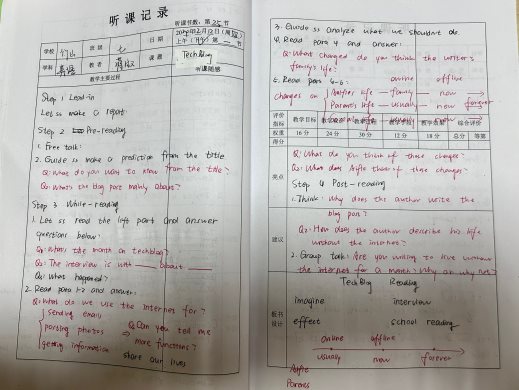 听课记录
听课节数：第25节
学校
班级 七
日期
上午（下午）第二节
学科 英语
教者
课题 Tech Blog
教学主要过程
听课随感
Step 1 Lead-in
Let ss make a report
Step 2 Pre-reading
1. Free talk:
2. Guide ss make a prediction from the title
Q: What do you want to know from the title?
Q: What's the blog part mainly about?
Step 3 While-reading
1. Let ss read the left part and answer
questions below:
Q1: What's the month on techblog?
Q2: The interview is with ___ about ___
Q3: What happened?
2. Read para 1-2 and answer:
Q: What do we use the internet for?
sending emails
posting photos
getting information
Q: Can you tell me
more functions?
share our lives
3. Guide ss analyze what we shouldn't do.
4. Read para 4 and answer:
Q: What changed do you think the writer's
family's life?
5. Read para 4-6:
online offline
changes on
Aoife's life — fancy — now →
Parents' life — usually — now → forever
评价指标 教学目标 教学内容 教学过程 教学手段 教学效果 综合评价
权重 16分 24分 30分 12分 18分 总分 等第
得分
亮点
Q1: What do you think of those changes?
Q2: What does Aoife think of those changes?
Step 4 Post-reading
1. Think: Why does the author write the
blog part?
建议
Q2: How does the author describe his life
without the internet?
2. Group talk: Are you willing to live without
the internet for a month? Why or why not?
板书设计
Tech Blog Reading
imagine interview
effect school reading
online offline
usually now forever
Aoife
Parents